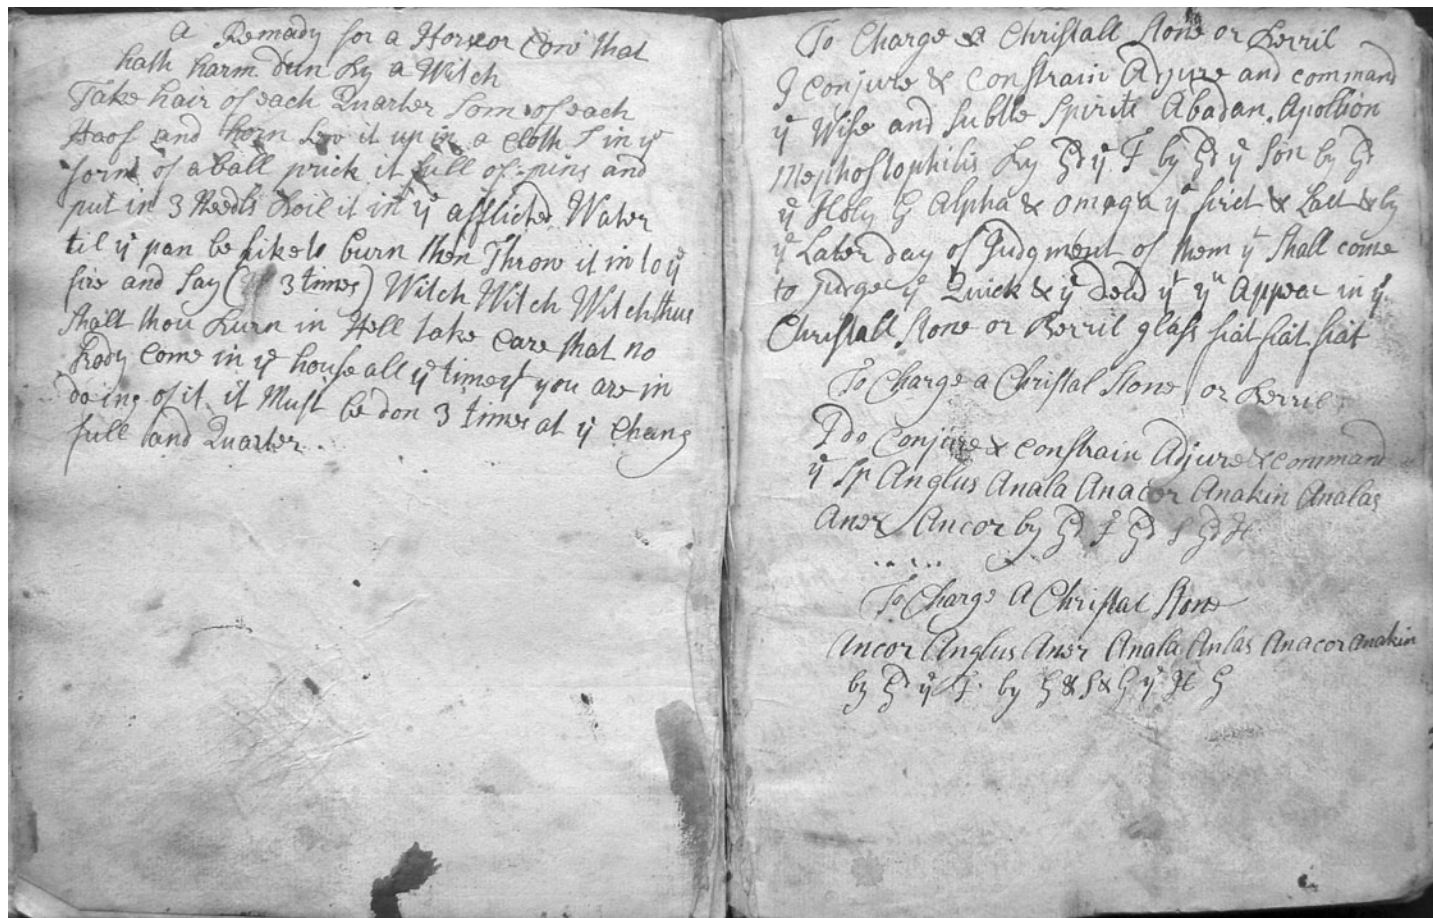 a Remady for a Hors or Cow that
hath harm dun by a Witch
Take hair of each Quarter som of each
Haof and horn Sew it up in a cloth in yᵉ
form of a ball prick it full of pins and
put in 3 Needls boil it in yᵉ afflicted Water
til yᵉ pan be like to burn then Throw it in to yᵉ
fire and Say ( 3 times) Witch Witch Witch thus
Shalt thou burn in Hell take care that no
body come in yᵉ house all yᵉ time yᵗ you are in
doing of it it Must be don 3 times at yᵉ Chang
full and Quarter .
To Charge a Christall Stone or Berril
I conjure & constrain Adjure and command
yᵉ Wise and Subtle Spirits Abadan, Apollion
Mephostophilis by Gd yᵉ F by Gd yᵉ Son by Gd
yᵉ Holy G Alpha & omega yᵉ first & Last & by
yᵉ Later day of Judgment of them yᵗ Shall come
to Judge yᵉ Quick & yᵉ dead yᵗ yᵘ Appear in yˢ
Christall Stone or Berril glass fiat fiat fiat
To Charge a Christal Stone or Berril
I do Conjure & constrain Adjure & command
yᵉ Sp Anglus Anala Anacor Anakin Analas
Aner Ancor by Gd F Gd S Gd H
.....
To Charge A Christal Stone
Ancor Anglus Aner Anala Anlas Anacor Anakin
by Gd yᵉ F. by G & S & G yᵉ H G